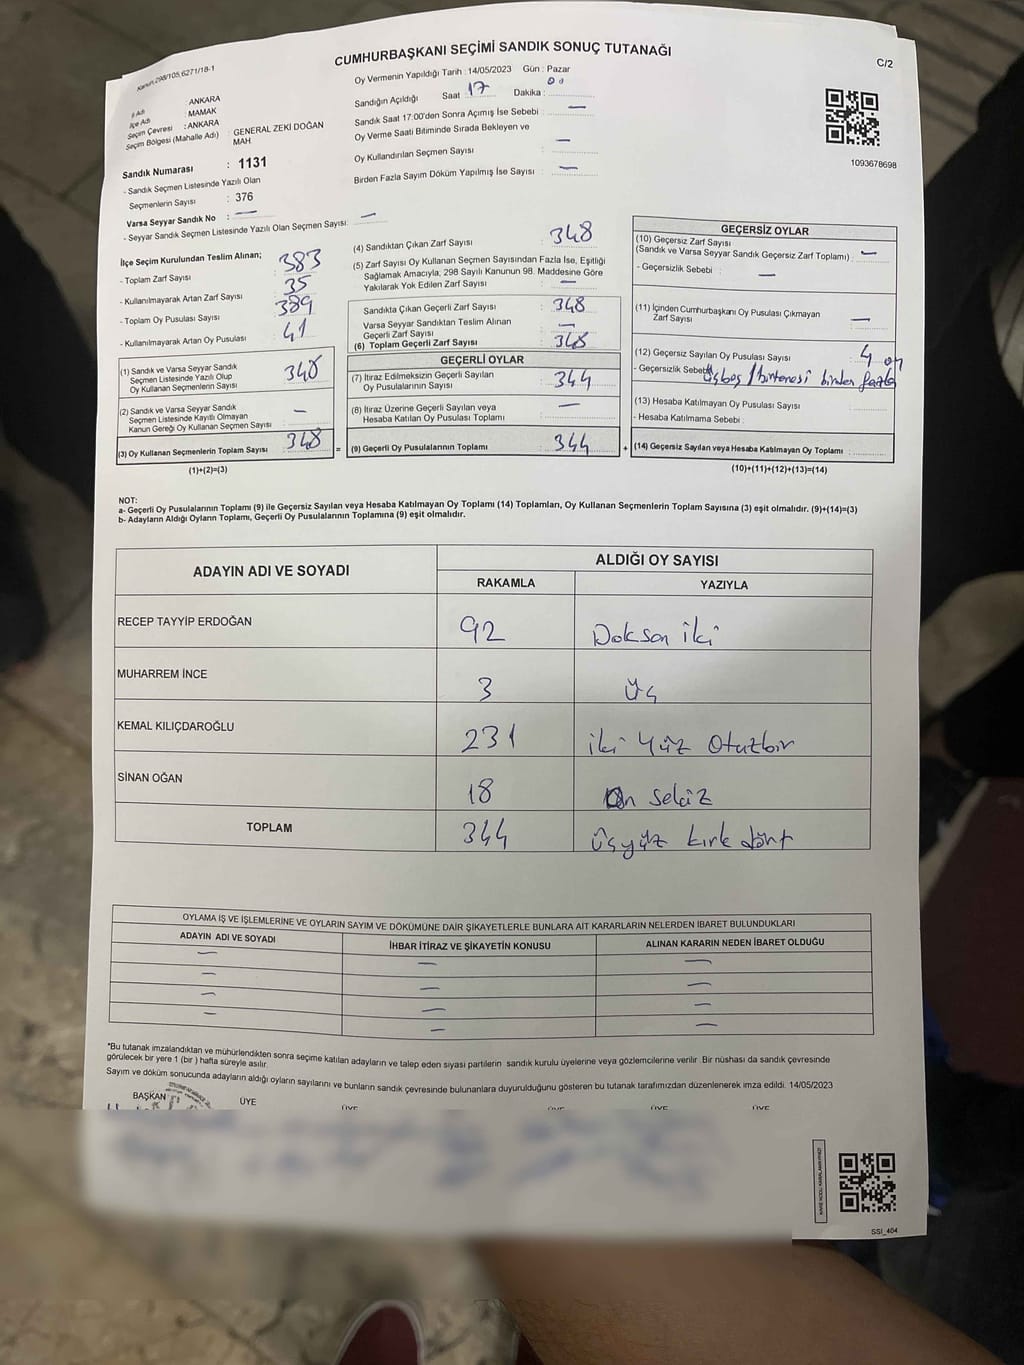 Kanun,298/105,6271/18-1
CUMHURBAŞKANI SEÇİMİ SANDIK SONUÇ TUTANAĞI
C/2
İl Adı : ANKARA
İlçe Adı : MAMAK
Seçim Çevresi : ANKARA
Seçim Bölgesi (Mahalle Adı) : GENERAL ZEKİ DOĞAN MAH.
Sandık Numarası : 1131
- Sandık Seçmen Listesinde Yazılı Olan
Seçmenlerin Sayısı : 376
Varsa Seyyar Sandık No : —
- Seyyar Sandık Seçmen Listesinde Yazılı Olan Seçmen Sayısı: —
Oy Vermenin Yapıldığı Tarih : 14/05/2023 Gün : Pazar
Sandığın Açıldığı Saat 17 Dakika : 00
Sandık Saat 17:00'den Sonra Açımış İse Sebebi : —
Oy Verme Saati Bitiminde Sırada Bekleyen ve
Oy Kullandırılan Seçmen Sayısı : —
Birden Fazla Sayım Döküm Yapılmış İse Sayısı : —
1093678698
İlçe Seçim Kurulundan Teslim Alınan;
- Toplam Zarf Sayısı : 383
- Kullanılmayarak Artan Zarf Sayısı : 35
- Toplam Oy Pusulası Sayısı : 389
- Kullanılmayarak Artan Oy Pusulası : 41
(1) Sandık ve Varsa Seyyar Sandık
Seçmen Listesinde Yazılı Olup
Oy Kullanan Seçmenlerin Sayısı : 348
(2) Sandık ve Varsa Seyyar Sandık
Seçmen Listesinde Kayıtlı Olmayan
Kanun Gereği Oy Kullanan Seçmen Sayısı : —
(3) Oy Kullanan Seçmenlerin Toplam Sayısı : 348 =
(1)+(2)=(3)
(4) Sandıktan Çıkan Zarf Sayısı : 348
(5) Zarf Sayısı Oy Kullanan Seçmen Sayısından Fazla İse, Eşitliği
Sağlamak Amacıyla; 298 Sayılı Kanunun 98. Maddesine Göre
Yakılarak Yok Edilen Zarf Sayısı : —
Sandıkta Çıkan Geçerli Zarf Sayısı : 348
Varsa Seyyar Sandıktan Teslim Alınan
Geçerli Zarf Sayısı : —
(6) Toplam Geçerli Zarf Sayısı : 348
GEÇERLİ OYLAR
(7) İtiraz Edilmeksizin Geçerli Sayılan
Oy Pusulalarının Sayısı : 344
(8) İtiraz Üzerine Geçerli Sayılan veya
Hesaba Katılan Oy Pusulası Toplamı : —
(9) Geçerli Oy Pusulalarının Toplamı : 344 +
GEÇERSİZ OYLAR
(10) Geçersiz Zarf Sayısı
(Sandık ve Varsa Seyyar Sandık Geçersiz Zarf Toplamı) : —
- Geçersizlik Sebebi : —
(11) İçinden Cumhurbaşkanı Oy Pusulası Çıkmayan
Zarf Sayısı : —
(12) Geçersiz Sayılan Oy Pusulası Sayısı : 4 oy
- Geçersizlik Sebebi : üçü boş / bir tanesi birden fazla
(13) Hesaba Katılmayan Oy Pusulası Sayısı :
- Hesaba Katılmama Sebebi :
(14) Geçersiz Sayılan veya Hesaba Katılmayan Oy Toplamı :
(10)+(11)+(12)+(13)=(14)
NOT:
a- Geçerli Oy Pusulalarının Toplamı (9) ile Geçersiz Sayılan veya Hesaba Katılmayan Oy Toplamı (14) Toplamları, Oy Kullanan Seçmenlerin Toplam Sayısına (3) eşit olmalıdır. (9)+(14)=(3)
b- Adayların Aldığı Oyların Toplamı, Geçerli Oy Pusulalarının Toplamına (9) eşit olmalıdır.
ADAYIN ADI VE SOYADI
ALDIĞI OY SAYISI
RAKAMLA YAZIYLA
RECEP TAYYİP ERDOĞAN 92 Doksan iki
MUHARREM İNCE 3 üç
KEMAL KILIÇDAROĞLU 231 iki yüz otuzbir
SİNAN OĞAN 18 On sekiz
TOPLAM 344 üçyüz kırk dört
OYLAMA İŞ VE İŞLEMLERİNE VE OYLARIN SAYIM VE DÖKÜMÜNE DAİR ŞİKAYETLERLE BUNLARA AİT KARARLARIN NELERDEN İBARET BULUNDUKLARI
ADAYIN ADI VE SOYADI İHBAR İTİRAZ VE ŞİKAYETİN KONUSU ALINAN KARARIN NEDEN İBARET OLDUĞU
— — —
— — —
— — —
— — —
*Bu tutanak imzalandıktan ve mühürlendikten sonra seçime katılan adayların ve talep eden siyasi partilerin sandık kurulu üyelerine veya gözlemcilerine verilir. Bir nüshası da sandık çevresinde
görülecek bir yere 1 (bir ) hafta süreyle asılır.
Sayım ve döküm sonucunda adayların aldığı oyların sayılarını ve bunların sandık çevresinde bulunanlara duyurulduğunu gösteren bu tutanak tarafımızdan düzenlenerek imza edildi. 14/05/2023
BAŞKAN ÜYE ÜYE ÜYE ÜYE ÜYE
SSI_404